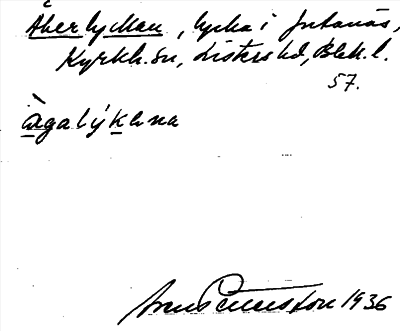 Åkerlyckan, lycka i Jutanäs,
Kyrkh. sn, Listers hd, Blek. l.
57.
àgalýkana
Petersson 1936